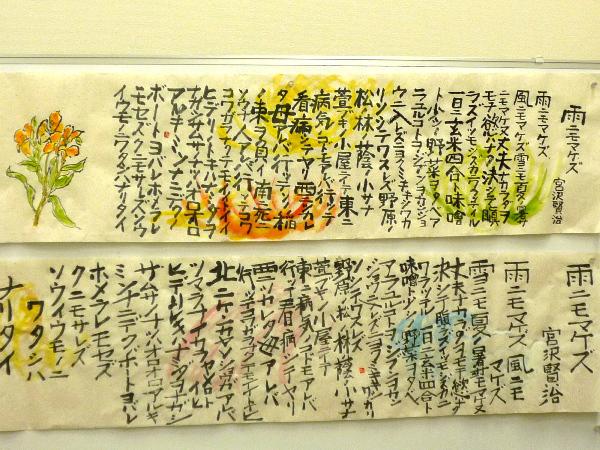 雨ニモマケズ
宮沢賢治
雨ニモマケズ
風ニモマケズ雪ニモ夏ノ暑サ
ニモマケヌ丈夫ナカラダヲ
モチ欲ハナク決シテ瞋
ラズイツモシヅカニワラッテイル
一日ニ玄米四合ト味噌
ト少シノ野菜ヲタベア
ラユルコトヲジブンヲカンジョ
ウニ入レズニヨクミキキシワカ
リソシテワスレズ野原ノ
松ノ林ノ蔭ノ小サナ
萱ブキノ小屋ニイテ東ニ
病気ノコドモアレバ行ッテ
看病シテヤリ西ニツカレ
タ母アレバ行ッテソノ稲
ノ束ヲ負イ南ニ死ニ
ソウナ人アレバ行ッテ
コワガラナクテモイイトイイ
ヒデリノトキハナミダヲ
ナガシサムサノナツハオロオロ
アルキミンナニデクノ
ボートヨバレホメラレ
モセズクニモサレズソウ
イウモノニワタシハナリタイ
雨ニモマケズ
宮沢賢治
雨ニモマケズ 風ニモ
マケズ
雪ニモ夏ノ暑サニモマケヌ
丈夫ナカラダヲモチ慾ハナ
ク決シテ瞋ラズイツモシヅカニ
ワラッテイル一日ニ玄米四合ト
味噌ト少シノ野菜ヲタベ
アラユルコトヲジブンヲカンジョウ
ニ入レズニヨクミキキシワカリ
ソシテワスレズ
野原ノ松ノ林ノ蔭ノ小サナ
萱ブキノ小屋ニイテ
東ニ病気ノコドモアレバ
行ッテ看病シテヤリ
西ニツカレタ母アレバ
行ッテコワガラナクテモイイトイイ
北ニケンカヤソショウガアレバ
ツマラナイカラヤメロトイイ
ヒデリノトキハナミダヲナガシ
サムサノナツハオロオロアルキ
ミンナニデクノボートヨバレ
ホメラレモセズ
クニモサレズ
ソウイウモノニ
ワタシハ
ナリタイ